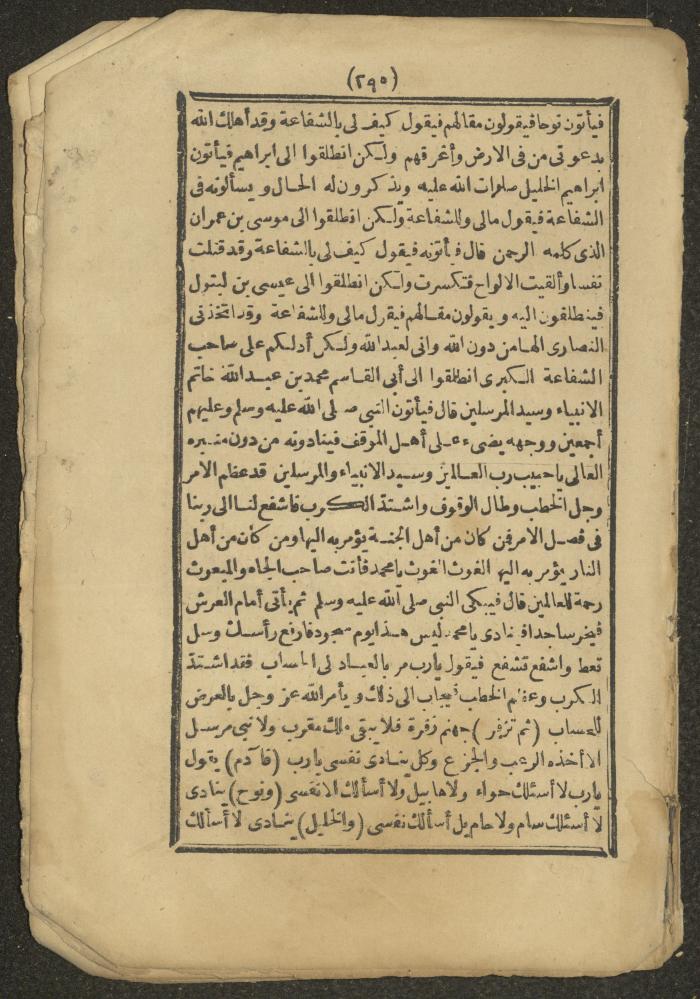 (٢٩٥)
فيأتون نوحا فيقولون مقالهم فيقول كيف لى بالشفاعة وقد أهلك الله
بدعوتى من فى الارض وأغرقهم ولكن انطلقوا الى ابراهيم فيأتون
ابراهيم الخليل صلوات الله عليه ويذكرون له الحال ويسألونه فى
الشفاعة فيقول مالى وللشفاعة ولكن انطلقوا الى موسى بن عمران
الذى كلمه الرحمن قال فيأتونه فيقول كيف لى بالشفاعة وقد قتلت
نفسا وألقيت الالواح فتكسرت ولكن انطلقوا الى عيسى بن البتول
فينطلقون اليه ويقولون مقالهم فيقول مالى وللشفاعة وقد اتخذنى
النصارى الها من دون الله وانى لعبد الله ولكن أدلكم على صاحب
الشفاعة الكبرى انطلقوا الى أبى القاسم محمد بن عبد الله خاتم
الانبياء وسيد المرسلين قال فيأتون النبى صلى الله عليه وسلم وعليهم
أجمعين ووجهه يضىء على أهل الموقف فينادونه من دون منبره
العالى يا حبيب رب العالمين وسيد الانبياء والمرسلين قد عظم الامر
وجل الخطب وطال الوقوف واشتد الكرب فاشفع لنا الى ربنا
فى فصل الامر فمن كان من أهل الجنة يؤمر به اليها ومن كان من أهل
النار يؤمر به اليها الغوث الغوث يا محمد فأنت صاحب الجاه والمبعوث
رحمة للعالمين قال فيبكى النبى صلى الله عليه وسلم ثم يأتى أمام العرش
فيخر ساجدا فينادى يا محمد ليس هذا يوم سجود فارفع رأسك وسل
تعط واشفع تشفع فيقول يا رب مر بالعباد الى الحساب فقد اشتد
الكرب وعظم الخطب فيجاب الى ذلك ويأمر الله عز وجل بالعرض
للحساب (ثم تزفر) جهنم زفرة فلا يبقى ملك مقرب ولا نبى مرسل
الا أخذه الرعب والجزع وكل ينادى نفسى يا رب (فآدم) يقول
يا رب لا أسئلك حواء ولا هابيل ولا أسألك الا نفسى (ونوح) ينادى
لا أسئلك سام ولا حام بل أسألك نفسى (والخليل) ينادى لا أسألك